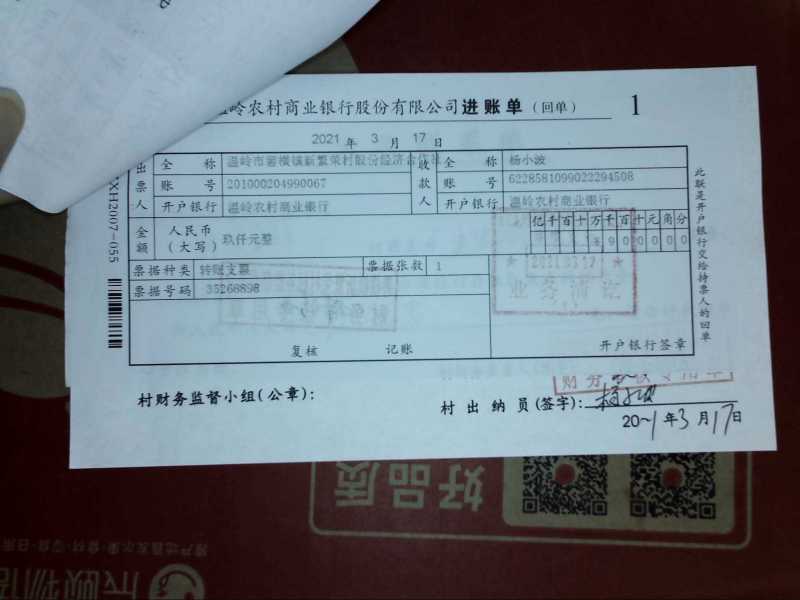 岭农村商业银行股份有限公司进账单(回单) 1
2021 年 3 月 17 日
出票人 全称 温岭市箬横镇新繁荣村股份经济合作社
收款人 全称 杨小波
账号 201000204990067
账号 6228581099022294508
开户银行 温岭农村商业银行
开户银行 温岭农村商业银行
金额 人民币(大写) 玖仟元整
亿千百十万千百十元角分
¥900000
票据种类 转账支票 票据张数 1
票据号码 35268898
2021.03.17
复核 记账
开户银行签章
此联是开户银行交给持票人的回单
XH2007-055
村财务监督小组(公章):
村出纳员(签字):
年3月17日
好品质